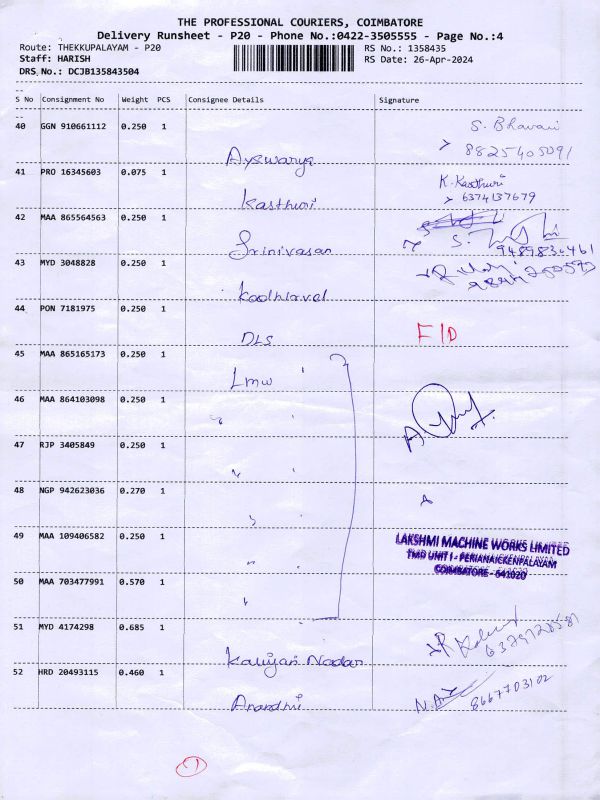 THE PROFESSIONAL COURIERS, COIMBATORE
Delivery Runsheet - P20 - Phone No.:0422-3505555 - Page No.:4
Route: THEKKUPALAYAM - P20 RS No.: 1358435
Staff: HARISH RS Date: 26-Apr-2024
DRS No.: DCJB135843504
S No Consignment No Weight PCS Consignee Details Signature
40 GGN 910661112 0.250 1 S. Bhavani
Ayswarya 8825405091
41 PRO 16345603 0.075 1 K. Kasthuri
Kasthuri 6374137679
42 MAA 865564563 0.250 1
Srinivasan 9489830461
43 MYD 3048828 0.250 1
Kadhiavel
44 PON 7181975 0.250 1
DLS F/D
45 MAA 865165173 0.250 1
Lmw
46 MAA 864103098 0.250 1
47 RJP 3405849 0.250 1
48 NGP 942623036 0.270 1
49 MAA 109406582 0.250 1
LAKSHMI MACHINE WORKS LIMITED
TMD UNIT I - PERIANAICKENPALAYAM
COIMBATORE - 641020
50 MAA 703477991 0.570 1
51 MYD 4174298 0.685 1
Kaliyan Nadar
52 HRD 20493115 0.460 1
Anandhi 8667703102
1